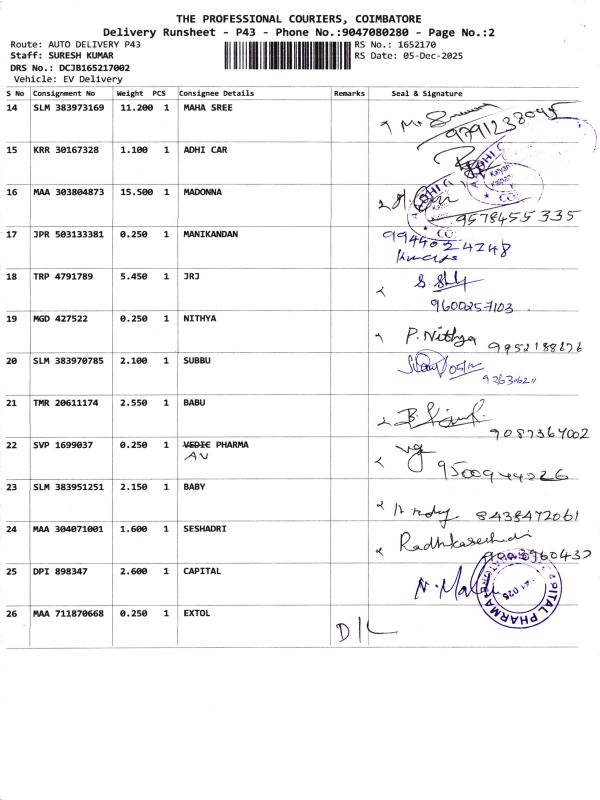 THE PROFESSIONAL COURIERS, COIMBATORE
Delivery Runsheet - P43 - Phone No.:9047080280 - Page No.:2
Route: AUTO DELIVERY P43 RS No.: 1652170
Staff: SURESH KUMAR RS Date: 05-Dec-2025
DRS No.: DCJB165217002
Vehicle: EV Delivery
S No Consignment No Weight PCS Consignee Details Remarks Seal & Signature
14 SLM 383973169 11.200 1 MAHA SREE
9791238095
15 KRR 30167328 1.100 1 ADHI CAR
16 MAA 303804873 15.500 1 MADONNA
9578455335
17 JPR 503133381 0.250 1 MANIKANDAN
9944024248
18 TRP 4791789 5.450 1 JRJ
9600257103
19 MGD 427522 0.250 1 NITHYA P. Nithya
20 SLM 383970785 2.100 1 SUBBU
21 TMR 20611174 2.550 1 BABU
9087367002
22 SVP 1699037 0.250 1 VEDIC PHARMA
AV
23 SLM 383951251 2.150 1 BABY
8438472061
24 MAA 304071001 1.600 1 SESHADRI
25 DPI 898347 2.600 1 CAPITAL
26 MAA 711870668 0.250 1 EXTOL
D/L